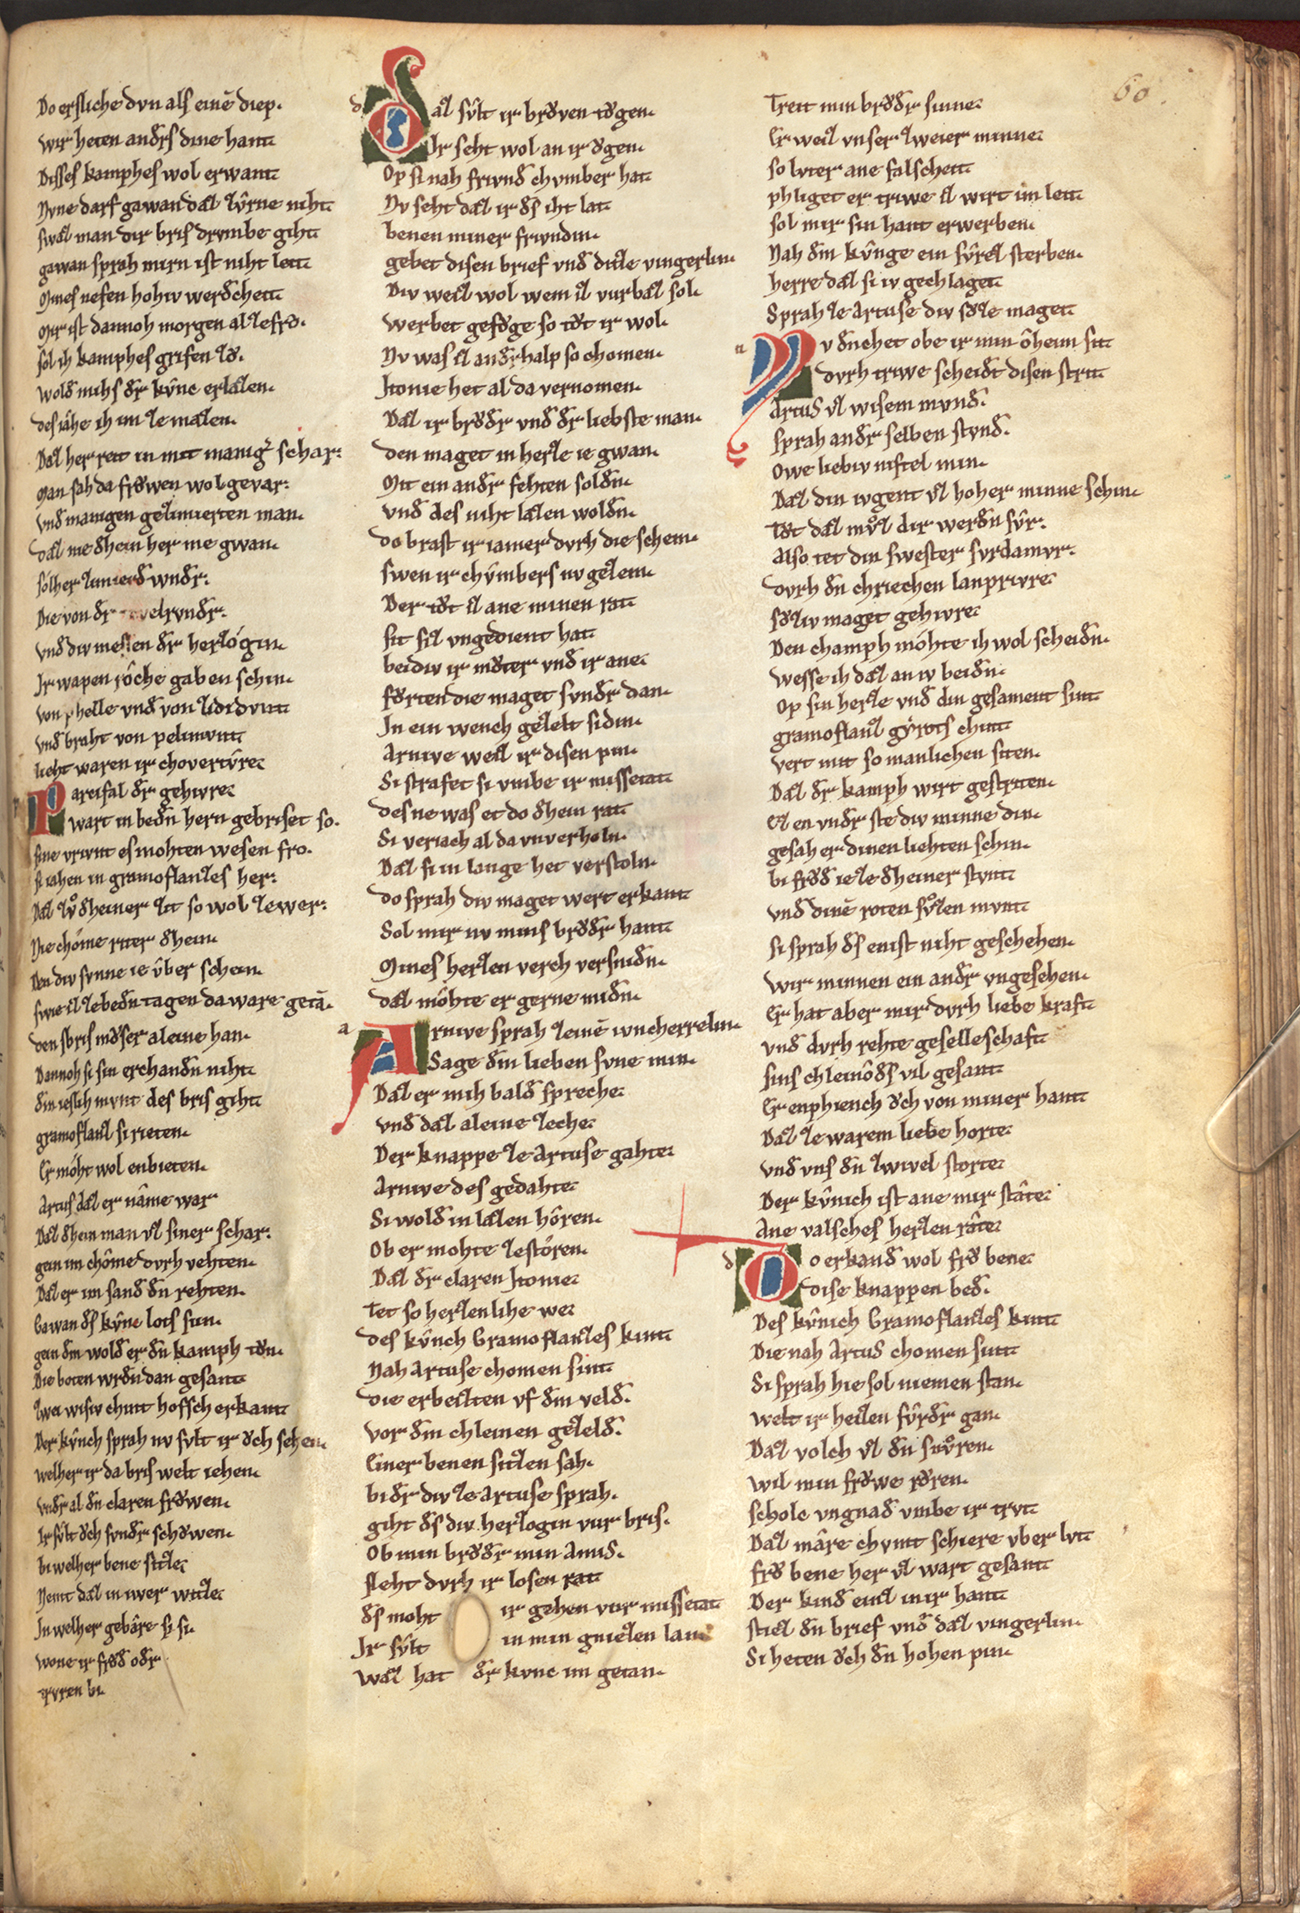 Do er sliche dvn als einē diep.
wir heten andˢs dine hant
Disses kamphes wol erwant
Nvne darf gawan daz zv̂rne niht
swaz man dir bris drvmbe giht
gawan sprah mirn ist niht leit
Mines nefen hohiv werdcheit
Mir ist dannoh morgen alze frv̊.
sol ih kamphes grifen zv̊.
wold mihs dˢ kvnc erlazen.
des iahe ih im ze mazen.
Daz her reit in mit manigˢ schar:
Man sah da frŏwen wol gevar:
vnd manigen gezimierten man.
daz nie dhein her me gwan.
sölher zimierd wndˢ:
Die von dˢ
vnd div messen dˢ herzôgin.
Ir wapen rôche gaben schin.
von phelle vnd von
vnd braht von pelimvnt
lieht waren ir chovertv̂re
Parcifal dˢ gehivre
wart in bedn̄ hern gebriset so.
sine vrivnt es mohten wesen fro.
si iahen in gramoflanzes her:
Daz zv̊ dheiner zit so wol zewer:
Nie chôme riter dhein.
Den div svnne ie v̂ber schein.
swie iz ze bedn̄ tagen da ware getā.
den sbris mv̊ser aleine han.
Dannoh si sin erchandn̄ niht
dem ieslih mvnt des bris giht
gramoflanz si rieten.
Er môht wol enbieten.
Artus daz er nâme war
Daz dhein man vz siner schar:
gein im chôme dvrh vehten.
Daz er im sand dn̄ rehten.
Gawan ds kv̂nc lots svn.
gein dem wold er dn̄ kamph tv̊n.
Die boten wrdn̄ dan gesant
zwei wisiv chint hofsch erkant
Der kv̂nch sprah nv svlt ir ŏch sehen.
welher ir da bris welt iehen.
vndˢ al dn̄ claren frŏwen.
Ir sv̂lt ŏch svndˢ schŏwen.
bi welher bene sitze
Nemt daz in iwer witze
In welher gebâre si si
wone ir frŏd odˢ
trvren bi.
Daz sv̂lt ir brv̊ven tŏgen.
Ir seht wol an ir ŏgen.
Op si nah frivnd chvmber hat
Nv seht daz ir ds iht lat
benen miner frivndin.
gebet disen brief vnd ditze vingerlin
Div weiz wol wem iz vurbaz sol.
werbet gefv̊ge so tv̊t ir wol.
Nv was iz andˢhalp so chomen.
Itonie het al da vernomen.
Daz ir brv̊dˢ vnd dˢ liebste man.
den maget in herze ie gwan.
Mit ein andˢ fehten soldn̄.
vnd des niht lazen woldn̄.
do brast ir iamer dvrh die schem.
swen ir chv̂mbers nv gezem.
Der tv̊t iz ane minen rat
sit siz vngedient hat
beidiv ir mv̊ter vnd ir ane
fv̊rten die maget svndˢ dan
In ein wench gezelt sidin.
Arnive weiz ir disen pin.
Si strafet si vmbe ir missetat
des ne was et do dhein rat
Si veriach al da vnverholn.
Daz si in lange het verstoln.
do sprah div maget wert erkant
Sol mir nv mins brv̊dˢ hant
Mines herzen verch versnidn̄.
daz môhte er gerne midn̄.
Arnive sprah zeinē ivncherrelin
Sage dem lieben svne min.
Daz er mih bald spreche
vnd daz aleine zeche
Der knappe ze Artuse gahte
Arnive des gedahte
Si wold in lazen hôren.
Ob er mohte zestôren.
Daz dˢ claren Itonie
Tet so herzenlihe we
des kv̂nch Gramoflanzes kint
Nah Artuse chomen sint
die erbeizten vf dem veld.
vor dem chleinen gezeld.
Einer benen sitzen sah.
bi dˢ div ze Artuse sprah.
giht ds div herzogin vur bris.
Ob min brv̊dˢ min amis.
sleht dvrh ir losen rat
ds moht ir gehen vur missetat
Ir sv̂lt in min
waz hat dˢ kvnc im getan.
Treit min brv̊dˢ sinne
Er weiz vnser zweier minne
so lvter ane falscheit
phliget er triwe iz wirt im leit
sol mir sin hant erwerben.
Nah dem kv̂nge ein sv̂rez sterben.
herre daz si iv gechlaget
Sprah ze Artuse div sv̊ze maget
Nv denchet obe ir min ôheim sit
dvrh triwe scheidt disen strit
Artus vz wisem mvnd.
Sprah andˢ selben stvnd.
Owe liebiv niftel min.
Daz din ivgent vz hoher minne schin.
tv̊t daz mv̊z dir werdn̄ sv̂r:
Also tet din swester svrdamvr:
dvrh dn̄ chriechen lanprivre
Sv̊ziv maget gehivre
Den champh môhte ih wol scheidn̄.
wesse ih daz an iv beidn̄.
Op sin herze vnd din gesament sint
gramoflanz gyrots chint
vert mit so manlichen siten.
Daz dˢ kamph wirt gestriten.
ez en vndˢ ste div minne din.
gesah er dinen liehten schin.
bi frŏd ie ze dheiner stvnt
vnd dinē roten sv̊zen mvnt
si sprah ds enist niht geschehen.
wir minnen ein andˢ vngesehen.
Er hat aber mir dvrh liebe kraft
vnd dvrh rehte geselleschaft
sins chleinôds vil gesant
Er enphiench ŏch von miner hant
Daz ze warem liebe horte
vnd vns dn̄ zwivel storte
Der kv̂nich ist ane mir stâte
Ane valsches herzen râte
Do erkand wol frŏ bene
dise knappen bed.
Des kv̂nich Gramoflanzes kint
Die nah Artus chomen sint
Si sprah hie sol niemen stan.
welt ir heizen fv̂rdˢ gan.
Daz volch vz dn̄ snv̊ren.
wil min frŏwe rv̊ren.
schole vngnad vmbe ir trvt
Daz mâre chvmt schiere vber lvt
frŏ bene her vz wart gesant
Der kind einz in ir hant
stiez dn̄ brief vnd daz vingerlin.
Si heten ŏch dn̄ hohen pin.
60.